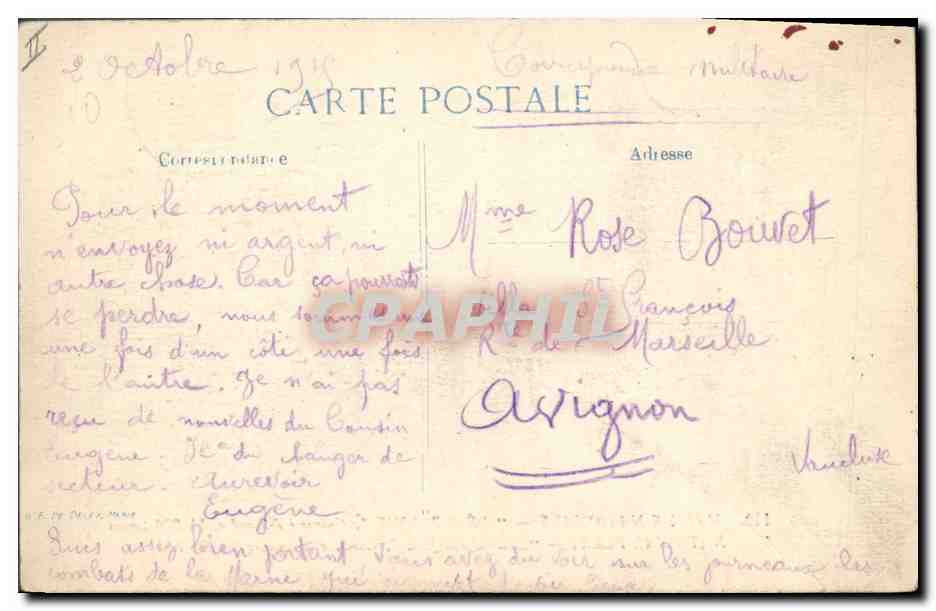 II
2 Octobre 1915
Correspondance militaire
CARTE POSTALE
Correspondance
Adresse
Pour le moment
n'envoyez ni argent, ni
autre chose. Car ça pourrait
se perdre, nous sommes
une fois d'un côté une fois
de l'autre. Je n'ai pas
reçu de nouvelles du Cousin
Eugène. Il a du changer de
secteur. Aurevoir
Eugène
Suis assez bien portant Vous avez du voir sur les journeaux les
combats de la Marne qui
Mme Rose Bouvet
villa St François
Rte de Marseille
Avignon
Vaucluse
CPAPHIL